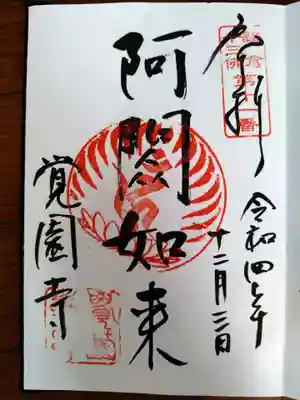 奉拝
鎌倉
十三佛
第十一番
令和四年
十二月三日
阿閦如来
覚園寺